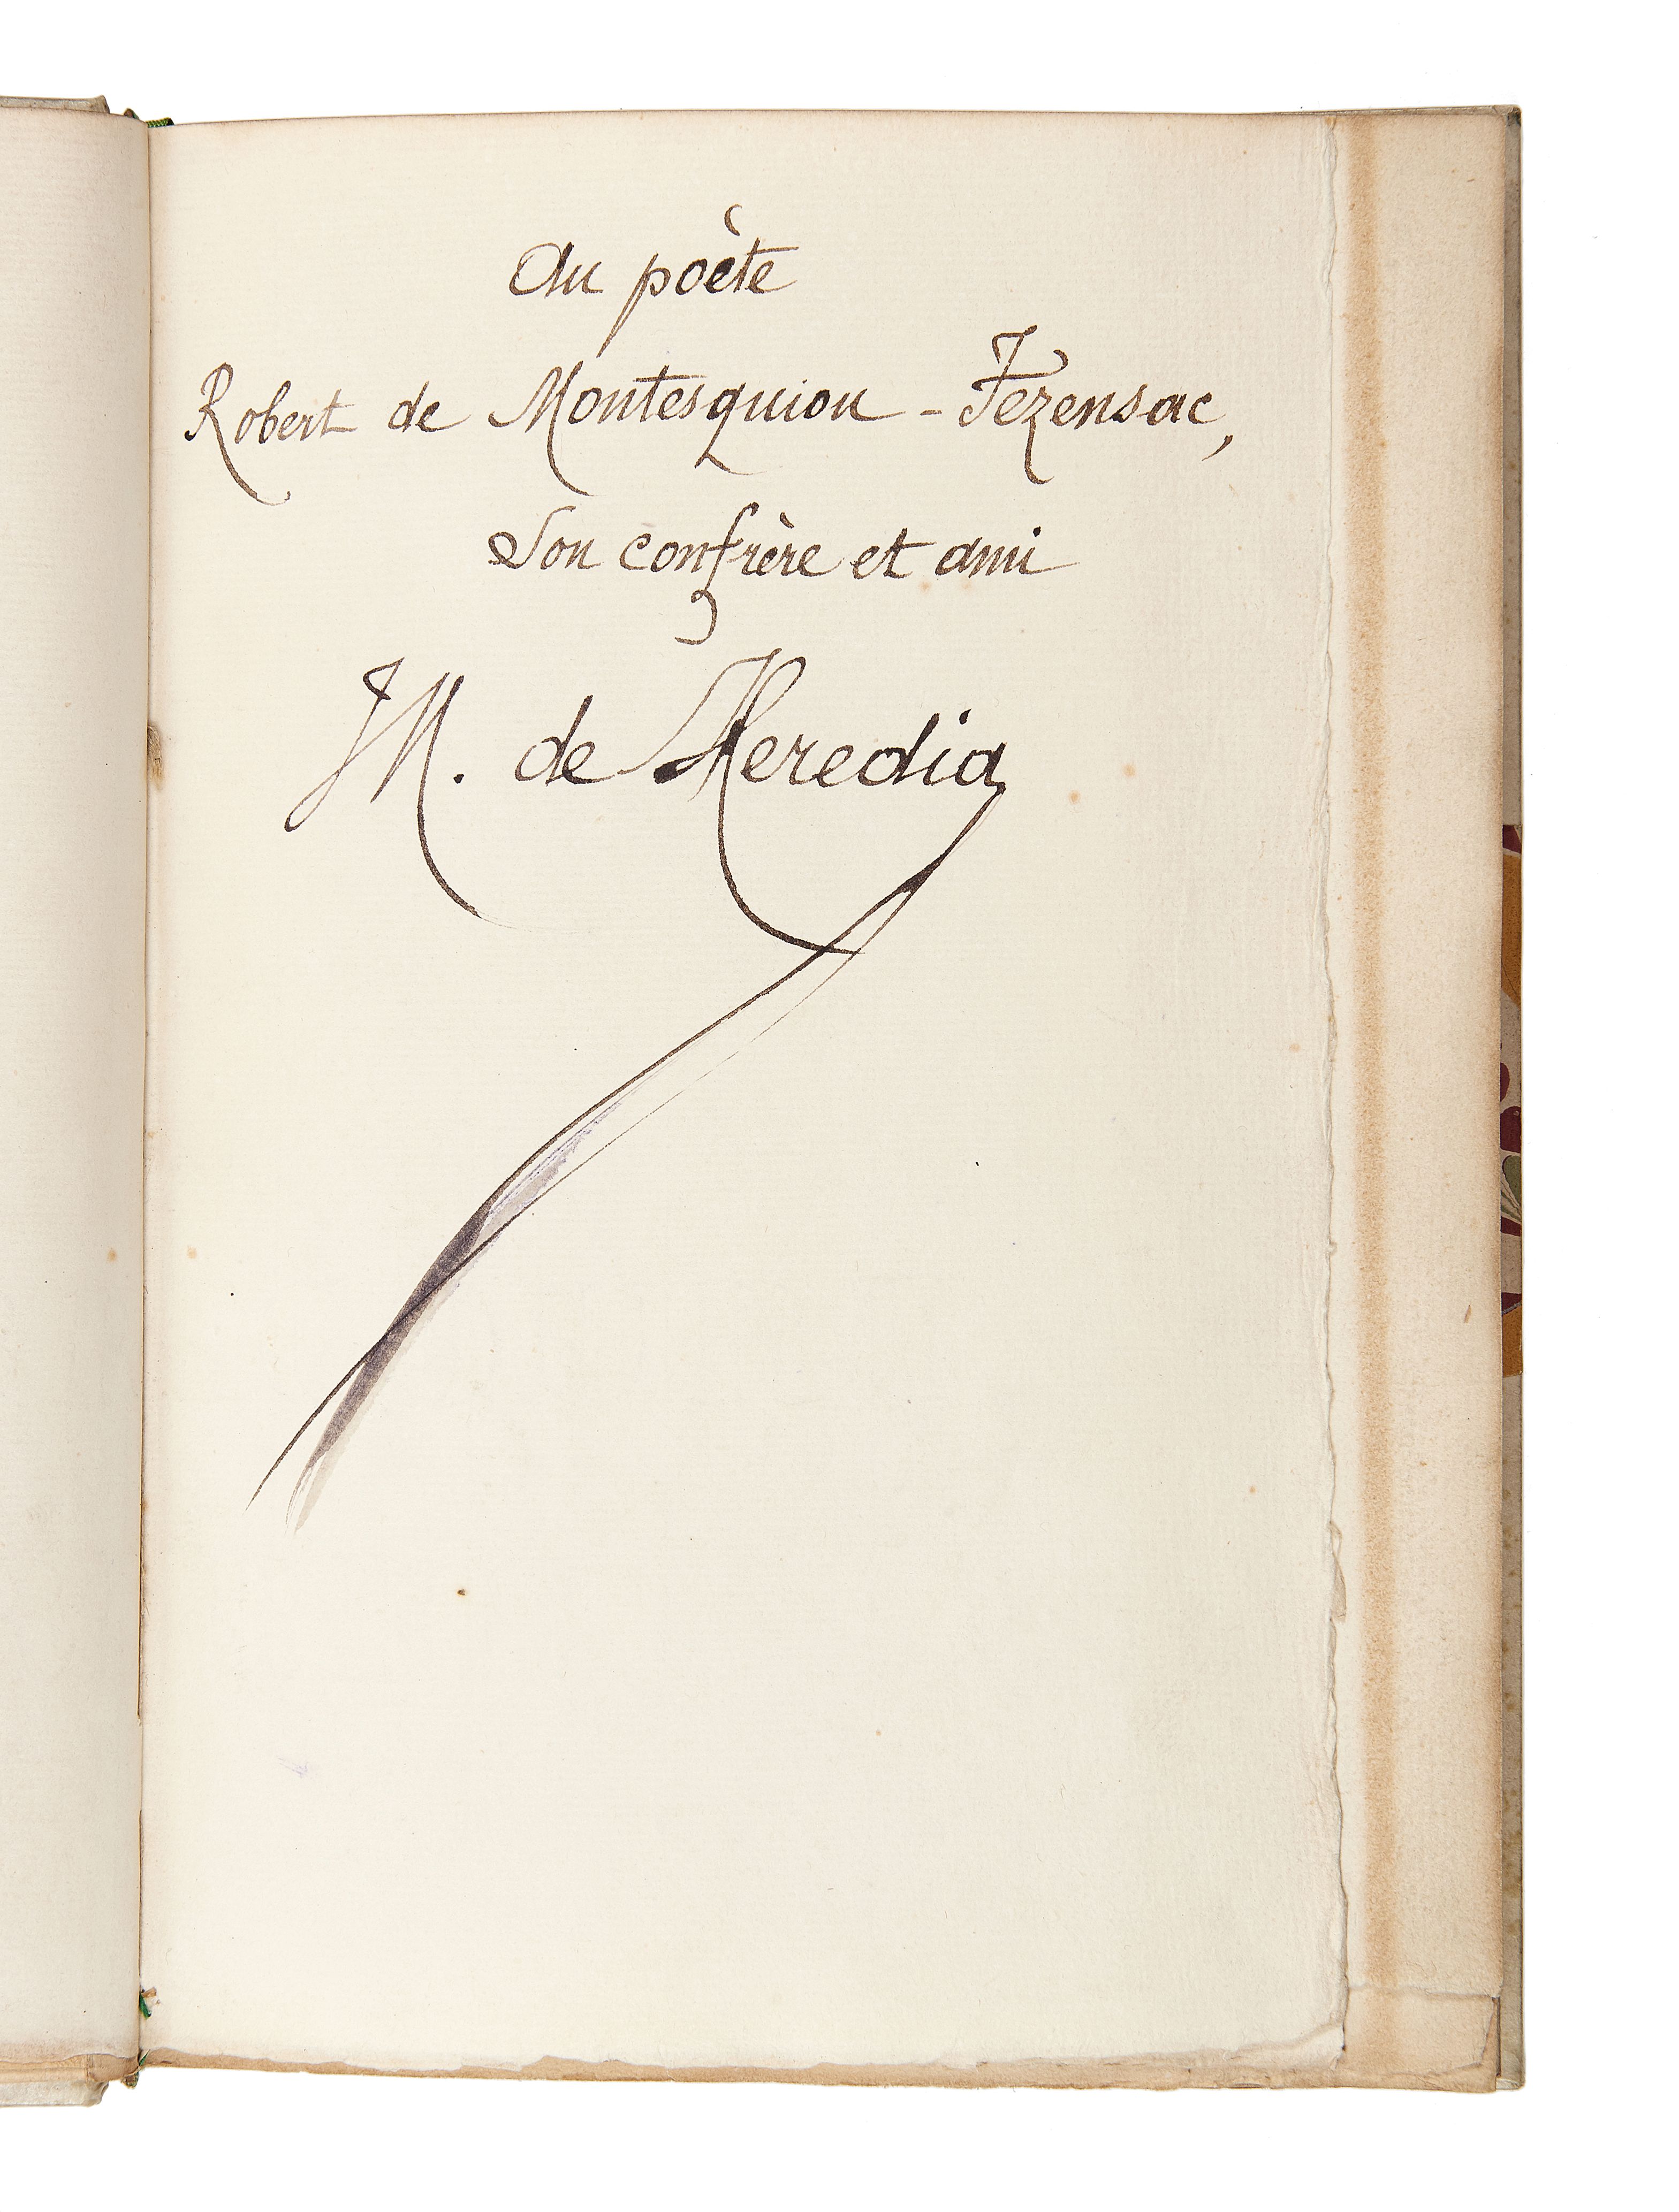 Au poète
Robert de Montesquiou - Fezensac,
Son confrère et ami
JM. de Heredia